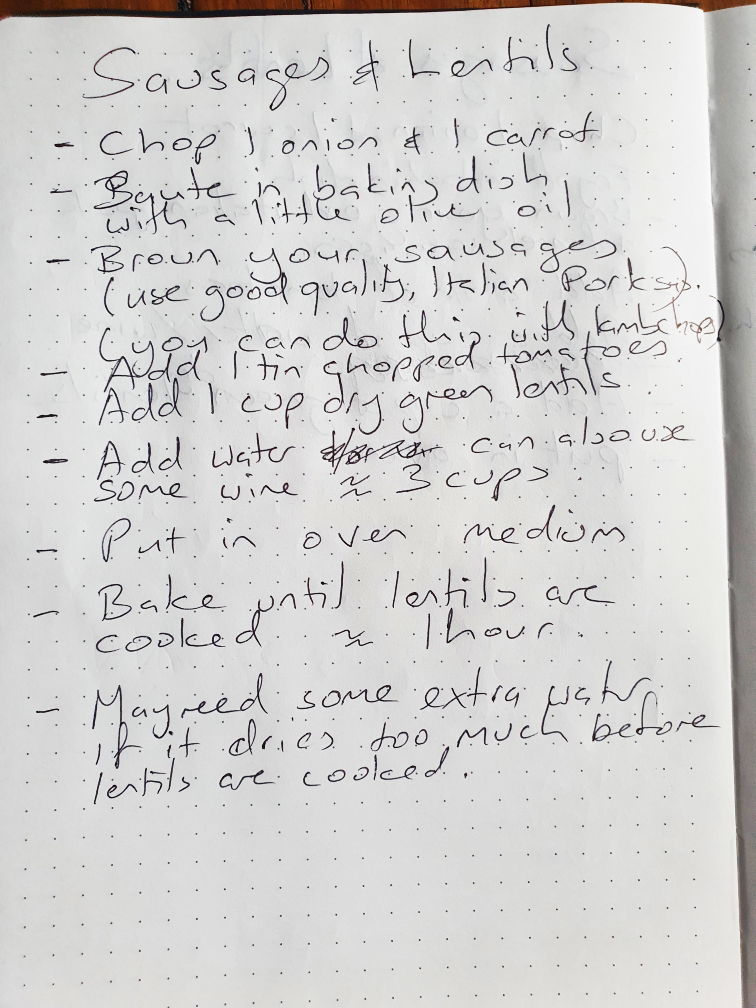 Sausages & Lentils
- Chop 1 onion & 1 carrot
- Saute in baking dish
with a little olive oil
- Brown your sausages
(use good quality, Italian Pork is).
(you can do this with lambchops)
- Add 1 tin chopped tomatoes.
- Add 1 cup dry green lentils.
- Add water can also use
some wine ≈ 3 cups.
- Put in oven medium
- Bake until lentils are
cooked ≈ 1 hour.
- May need some extra water
if it dries too much before
lentils are cooked.